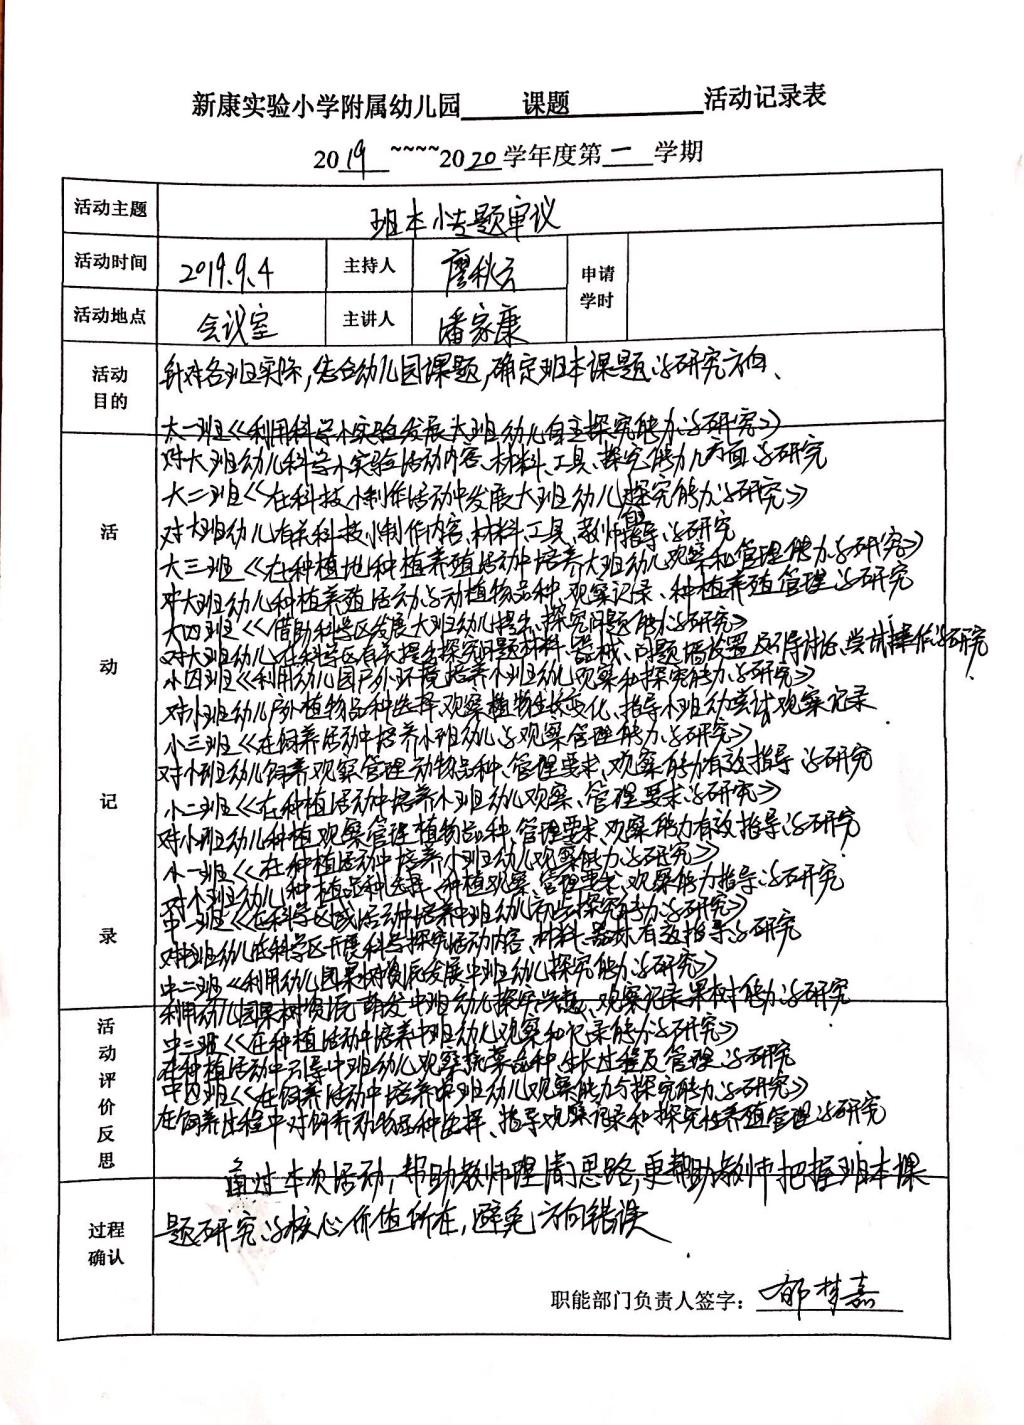 新康实验小学附属幼儿园 课题 活动记录表
2019 ~~~~2020学年度第一学期
活动主题 班本小专题审议
活动时间 2019.9.4 主持人 廖秋云 申请学时
活动地点 会议室 主讲人 潘家康
活动目的 针对各班实际,结合幼儿园课题,确定班本课题的研究方向、
活动记录
大一班《利用科学小实验发展大班幼儿自主探究能力的研究》
对大班幼儿科学小实验活动内容、材料、工具、探究能力几方面的研究
大二班《在科技小制作活动中发展大班幼儿探究能力的研究》
对大班幼儿有关科技小制作内容、材料、工具、教师指导的研究
大三班《在种植地种植养殖活动中培养大班幼儿观察和管理能力的研究》
对大班幼儿种植养殖活动的动植物品种、观察记录、种植养殖管理的研究
大四班《借助科学区发展大班幼儿提出、探究问题能力的研究》
对大班幼儿在科学区有关提出探究问题的材料、器械、问题墙设置及引导讨论、尝试操作的研究
小四班《利用幼儿园户外环境培养小班幼儿观察和探究能力的研究》
对小班幼儿户外植物品种选择、观察植物生长变化、指导小班幼尝试观察记录
小三班《在饲养活动中培养小班幼儿的观察管理能力的研究》
对小班幼儿饲养观察管理动物品种、管理要求、观察能力有效指导的研究
小二班《在种植活动中培养小班幼儿观察、管理要求的研究》
对小班幼儿种植观察管理植物品种、管理要求、观察能力有效指导的研究
小一班《在种植活动中培养小班幼儿观察能力的研究》
对小班幼儿种植品种选择、种植观察、管理要求、观察能力指导的研究
中一班《在科学区域活动中培养中班幼儿初步探究能力的研究》
对中班幼儿在科学区开展科学探究活动内容、材料、器材、有效指导的研究
中二班《利用幼儿园果树资源发展中班幼儿探究能力的研究》
利用幼儿园果树资源、萌发中班幼儿探究兴趣、观察记录果树能力的研究
活动评价反思
中三班《在种植活动中培养中班幼儿观察和记录能力的研究》
在种植活动中引导中班幼儿观察蔬菜品种、生长过程及管理的研究
中四班《在饲养活动中培养中班幼儿观察能力与探究能力的研究》
在饲养过程中对饲养动物品种选择、指导观察记录和探究性养殖管理的研究
通过本次活动,帮助教师理清思路,更帮助教师把握班本课
题研究的核心价值所在,避免方向错误
过程确认
职能部门负责人签字: 郁梦嘉